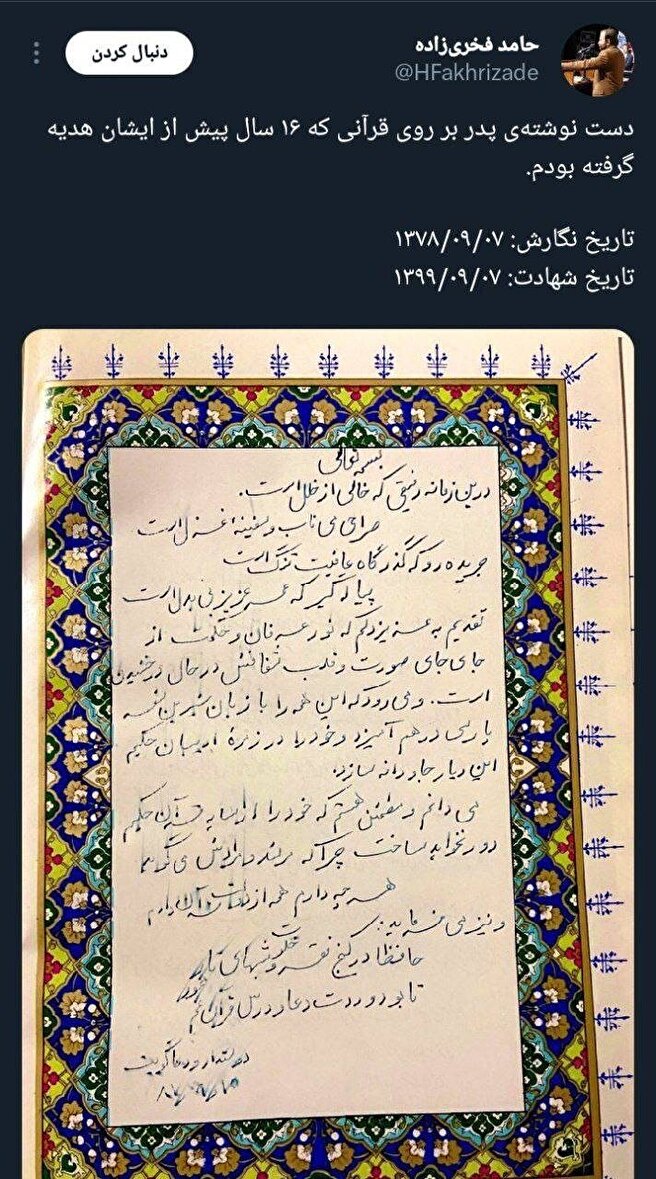 حامد فخری‌زاده
@HFakhrizade
دنبال کردن
دست نوشته‌ی پدر بر روی قرآنی که ۱۶ سال پیش از ایشان هدیه
گرفته بودم.
تاریخ نگارش: ۱۳۷۸/۰۹/۰۷
تاریخ شهادت: ۱۳۹۹/۰۹/۰۷
بسمه تعالی
درین زمانه رفیقی که خالی از خلل است.
صراحی می ناب و سفینه غزل است
جریده رو که گذرگاه عافیت تنگ است
پیاله گیر که عمر عزیز بی بدل است
تقدیم به عزیزدلم که نور عرفان و از
جای جای صورت و قلب در حال درخشیدن
است. و می رود که این همه را با زبان شیرین
پارسی درهم آمیزد و خود را در زمره ادیبان حکیم
این دیار جاودانه سازد.
می دانم و مطمئن هستم که خود را از قرآن حکیم
دور نخواهد ساخت چرا که
هر چه دارم همه از دولت قرآن دارم
و نیز می فرماید:
حافظا در کنج فقر و خلوت شبهای تار
تا بود وردت دعا و درس قرآن غم مخور
دوستدار و دعاگویت